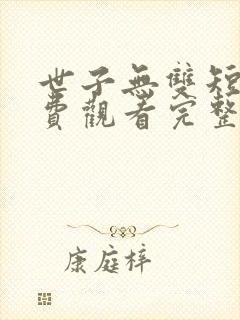 世子無雙短
費觀看完整
康庭梓